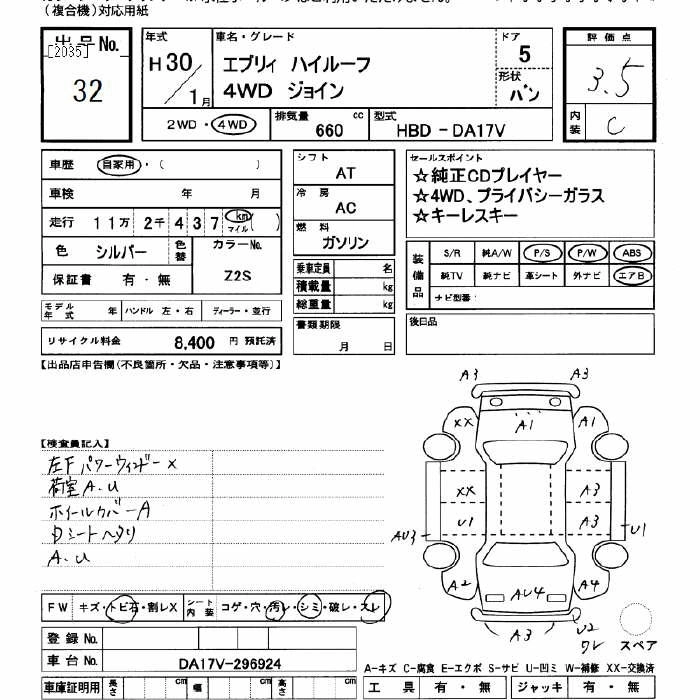 (複合機)対応用紙
出品No.
[2035]
32
年式
H30/1月
車名・グレード
エブリィ ハイルーフ
4WD ジョイン
ドア
5
形状
バン
評価点
3.5
内装
C
2WD・4WD
排気量 660 cc
型式 HBD-DA17V
車歴 自家用・( )
車検 年 月
走行 11万 2千 4 3 7 km マイル ( )
色 シルバー 色替
カラーNo.
Z2S
保証書 有・無
モデル年式 年 ハンドル 左・右 ディーラー・並行
リサイクル料金 8,400 円 預託済
シフト
AT
冷房
AC
燃料
ガソリン
乗車定員 名
積載量 kg
総重量 kg
書類期限
月 日
セールスポイント
☆純正CDプレイヤー
☆4WD、プライバシーガラス
☆キーレスキー
装備品
S/R 純A/W P/S P/W ABS
純TV 純ナビ 革シート 外ナビ エアB
ナビ型番:
後日品
【出品店申告欄(不良箇所・欠品・注意事項等)】
【検査員記入】
左F パワーウィンドー×
荷室 A.U
ホイールカバーA
Dシートヘタリ
A.U
A3 A3
XX A1 A1
XX A3
U1 A3
AU3 U1
A2 AU4 A4
A3 U2
ワレ
スペア
FW キズ・トビ石・割レX シート内装 コゲ・穴・汚レ・シミ・破レ・スレ
登録No.
車台No. DA17V-296924
車庫証明用 長さ cm 幅 cm 高さ cm
A-キズ C-腐食 E-エクボ S-サビ U-凹ミ W-補修 XX-交換済
工具 有・無 ジャッキ 有・無